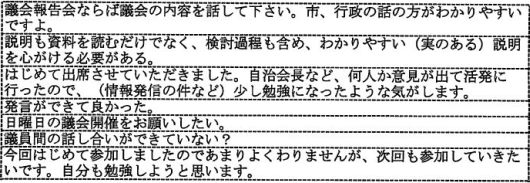 議会報告会ならば議会の内容を話して下さい。市、行政の話の方がわかりやすい
ですよ。
説明も資料を読むだけでなく、検討過程も含め、わかりやすい（実のある）説明
を心がける必要がある。
はじめて出席させていただきました。自治会長など、何人か意見が出て活発に
行ったので、（情報発信の件など）少し勉強になったような気がします。
発言ができて良かった。
日曜日の議会開催をお願いしたい。
議員間の話し合いができていない？
今回はじめて参加しましたのであまりよくわりませんが、次回も参加していきた
いです。自分も勉強しようと思います。